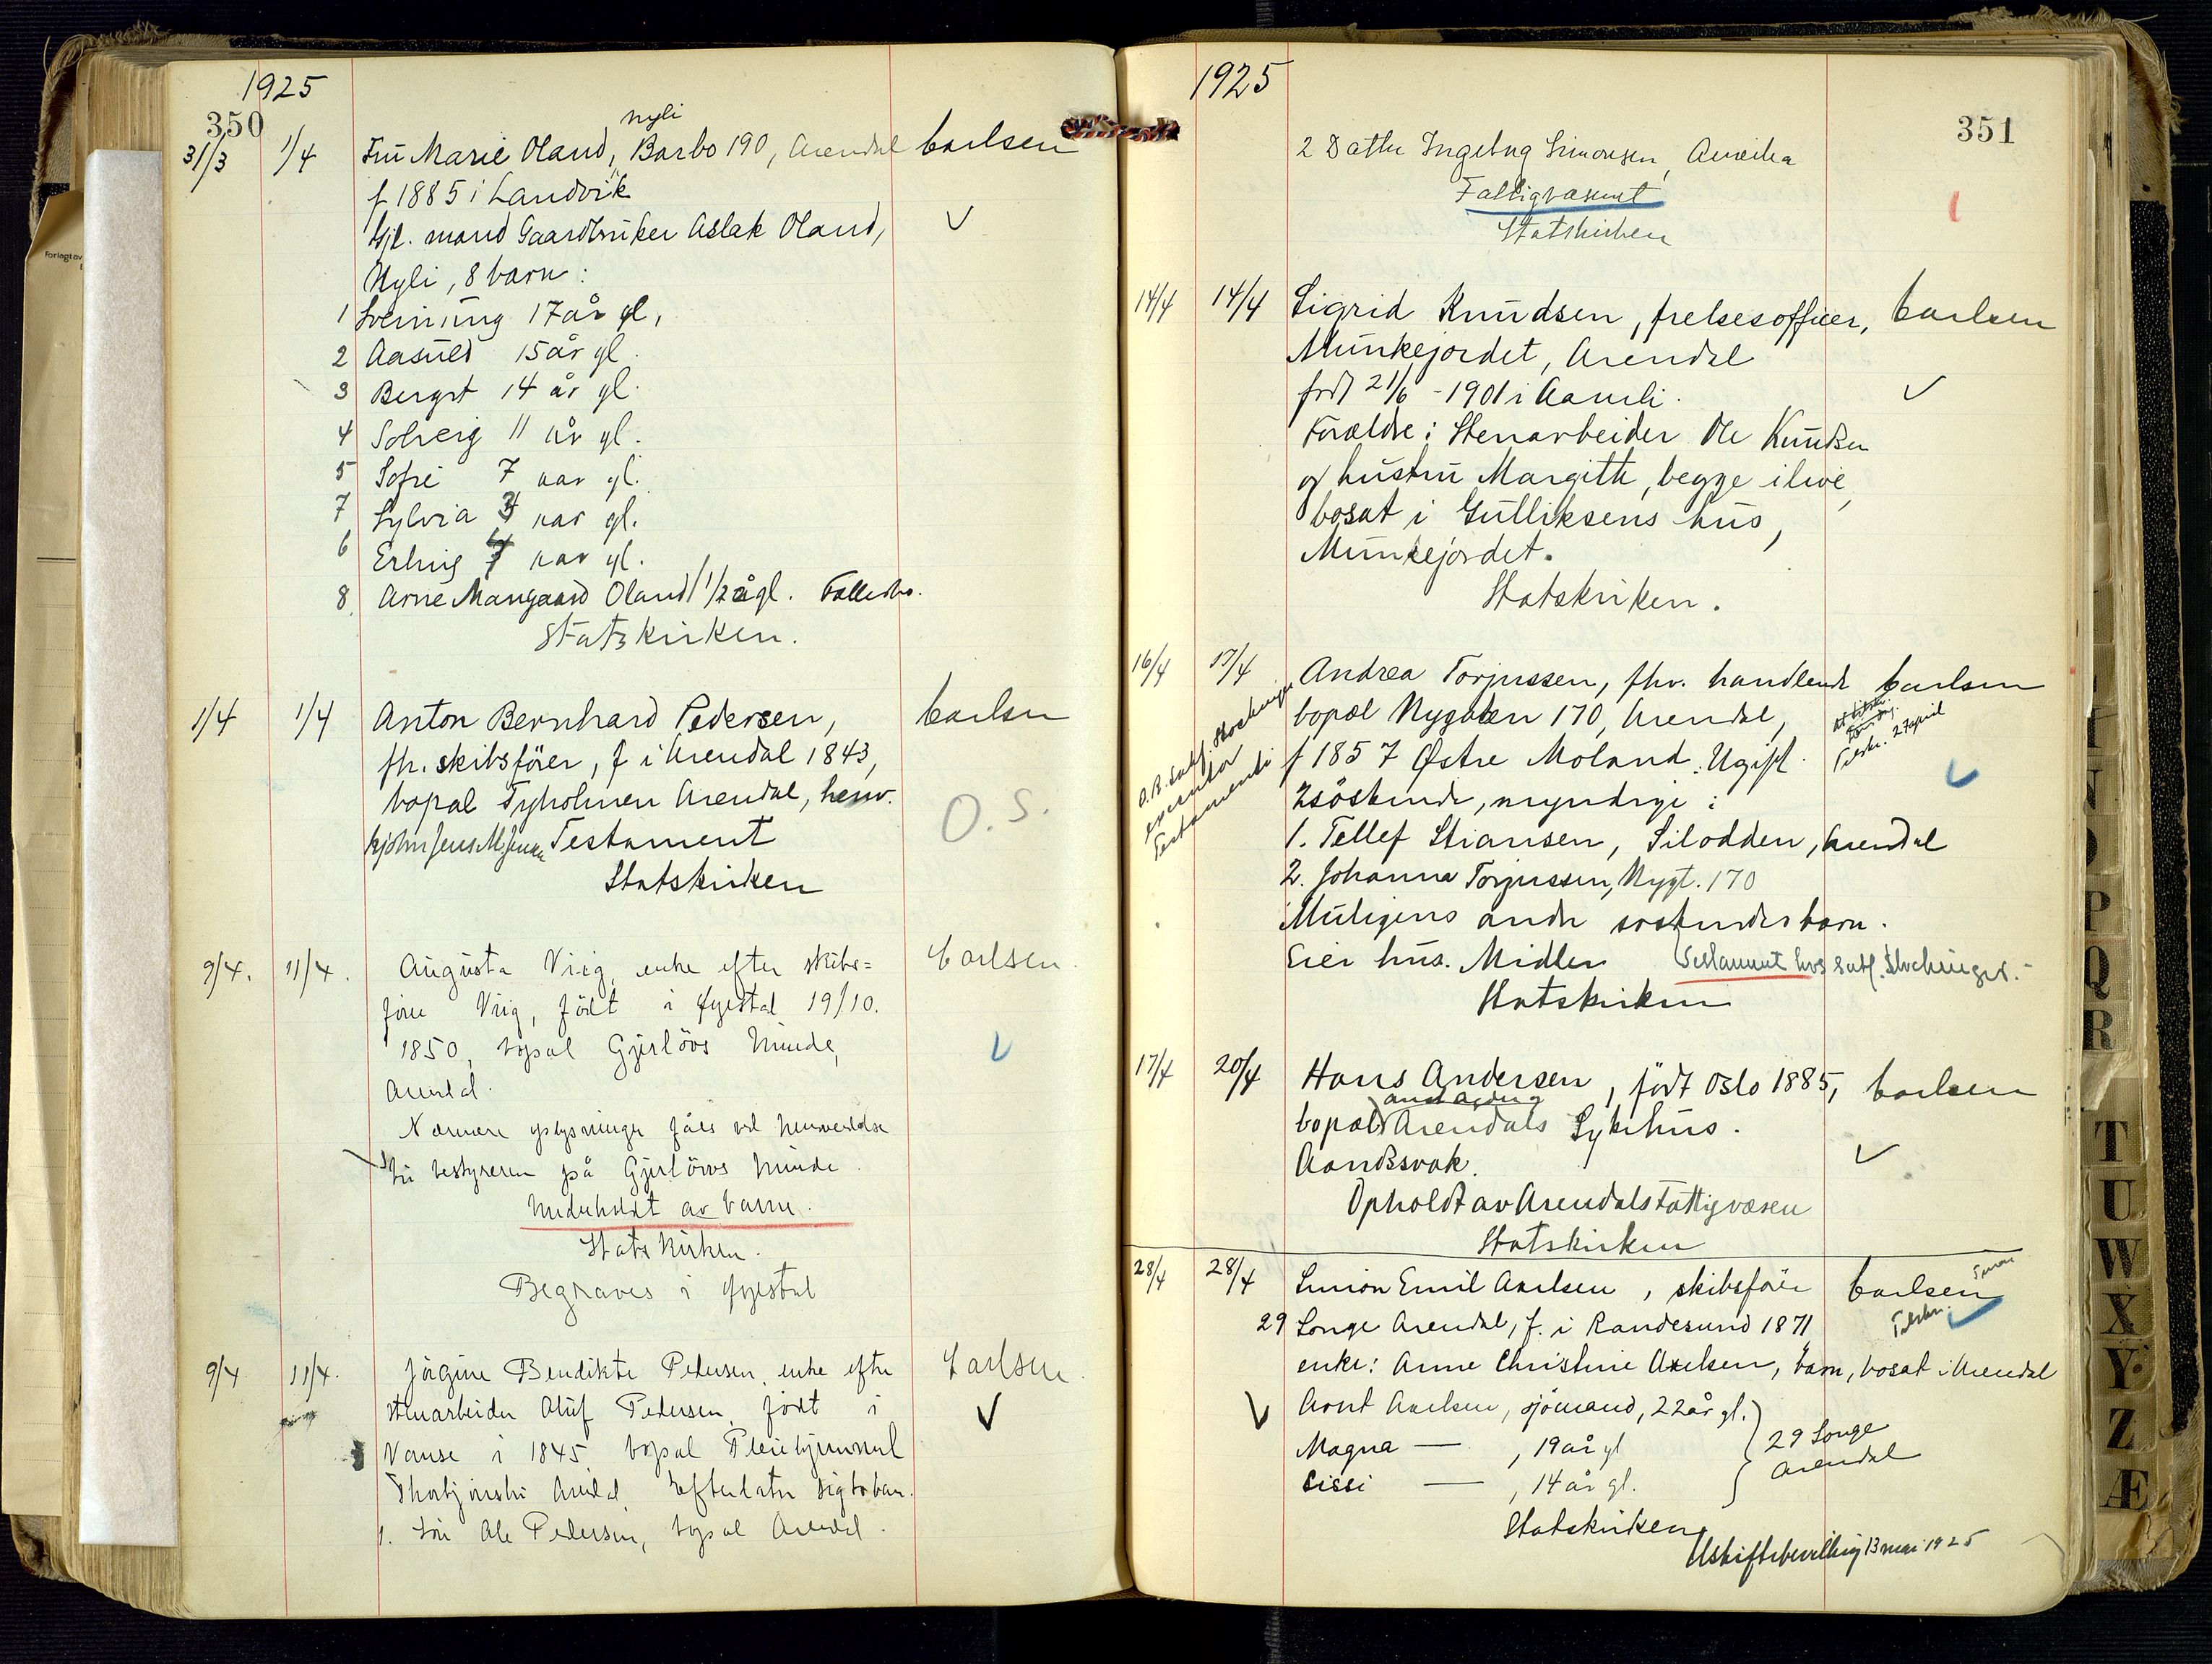 1925
350
31/3 1/4 Fru Marie Oland, Nyli Barbo 190, Arendal Carlsen
f 1885 i Landvik
Gjl. mand Gaardbruker Aslak Oland,
Nyli, 8 barn:
1 Sveinung 17 år gl,
2 Aasuld 15 år gl.
3 Bergit 14 år gl.
4 Solveig 11 år gl.
5 Sofie 7 aar gl.
7 Sylvia 3 aar gl.
6 Erling aar gl.
8 Arne Mangaard Oland 1/2 å gl. Fællesbo.
Statskirken.
1/4 1/4 Anton Bernhard Pedersen, Carlsen
fh. skibsfører, f i Arendal 1843,
bopæl Tyholmen Arendal, henv.
Testament
O.S.
Statskirken
9/4. 11/4. Augusta Viig, enke efter skibs= Carlsen.
fører Viig, født i Øyestad 19/10.
1850, bopæl Gjerlöws Minde,
Arendal.
Nærmere oplysninger fåes ved henvendelse
til bestyreren på Gjerlöws Minde.
Underholdt av barn.
Statskirken.
Begraves i Øyestad
9/4 11/4. Jörgine Bendikte Pedersen, enke efter Carlsen.
stenarbeider Oluf Pedersen, født i
Vanse i 1845, bopæl Pleiehjemmet
Thorbjörnsbo Arendal. Efterlater sig to barn.
1. Sön Ole Pedersen, bopæl Arendal.
1925
351
2 Datter Ingeborg Simonsen, Amerika
Fattigvæsenet
Statskirken
14/4 14/4 Sigrid Knudsen, frelsesofficer, Carlsen
Munkejordet, Arendal
født 21/6 - 1901 i Aamli.
Forældre: Stenarbeider Ole Knudsen
og hustru Margith, begge ilive,
bosat i Gulliksens hus,
Munkejordet.
Statskirken.
16/4 17/4 Andrea Torjussen, fhv. handlende Carlsen
bopæl Nygaten 170, Arendal,
f 1857 Østre Moland. Ugift.
2 söskende, myndige:
1. Tellef Stiansen, Silodden, Arendal
2. Johanna Torjussen, Nygt. 170
Muligens andre søskendebarn.
Eier hus. Midler Testament hos Sakf.
Statskirken
O.R. Sakf.
executor
Testamenti
Tilskr. 27 april
17/4 20/4 Hans Andersen, født Oslo 1885, Carlsen
bopæl Arendals Sykehus.
Aandssvak.
Opholdt av Arendals Fattigvæsen
Statskirken
28/4 28/4 Simon Emil Axelsen, skibsfører Carlsen
29 Songe Arendal, f. i Randesund 1871
Tilskr.
enke: Anne Christine Axelsen, barn, bosat i Arendal
Arnt Axelsen, sjömand, 22 år gl.
Magna — , 19 år gl
Sissi — , 14 år gl.
29 Songe
Arendal
Statskirken
Uskiftebevilling 13 mai 1925
T
U
W
X
Y
Z
Æ
N
O
P
Q
R